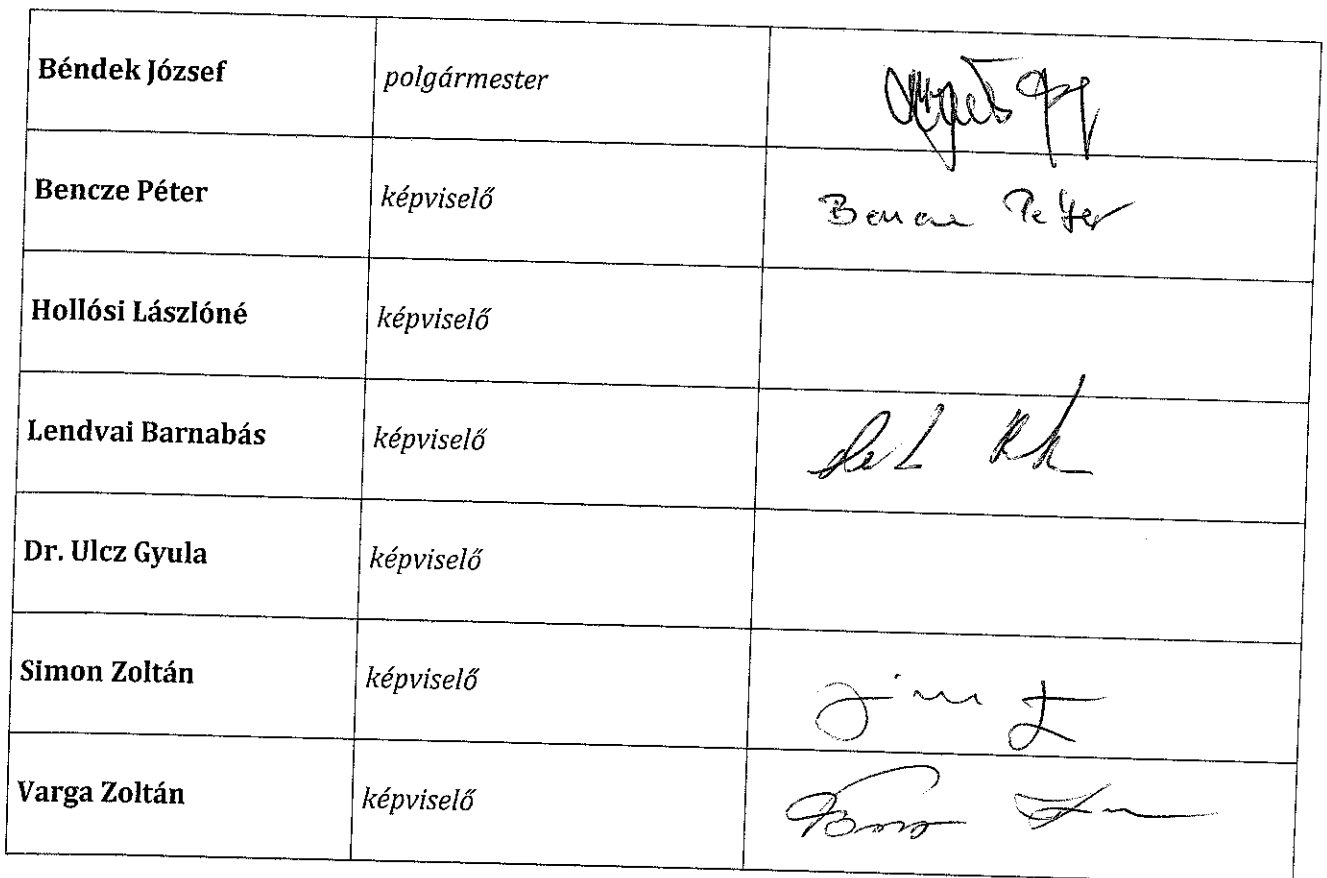 Béndek József polgármester
Bencze Péter képviselő Bencze Péter
Hollósi Lászlóné képviselő
Lendvai Barnabás képviselő
Dr. Ulcz Gyula képviselő
Simon Zoltán képviselő
Varga Zoltán képviselő